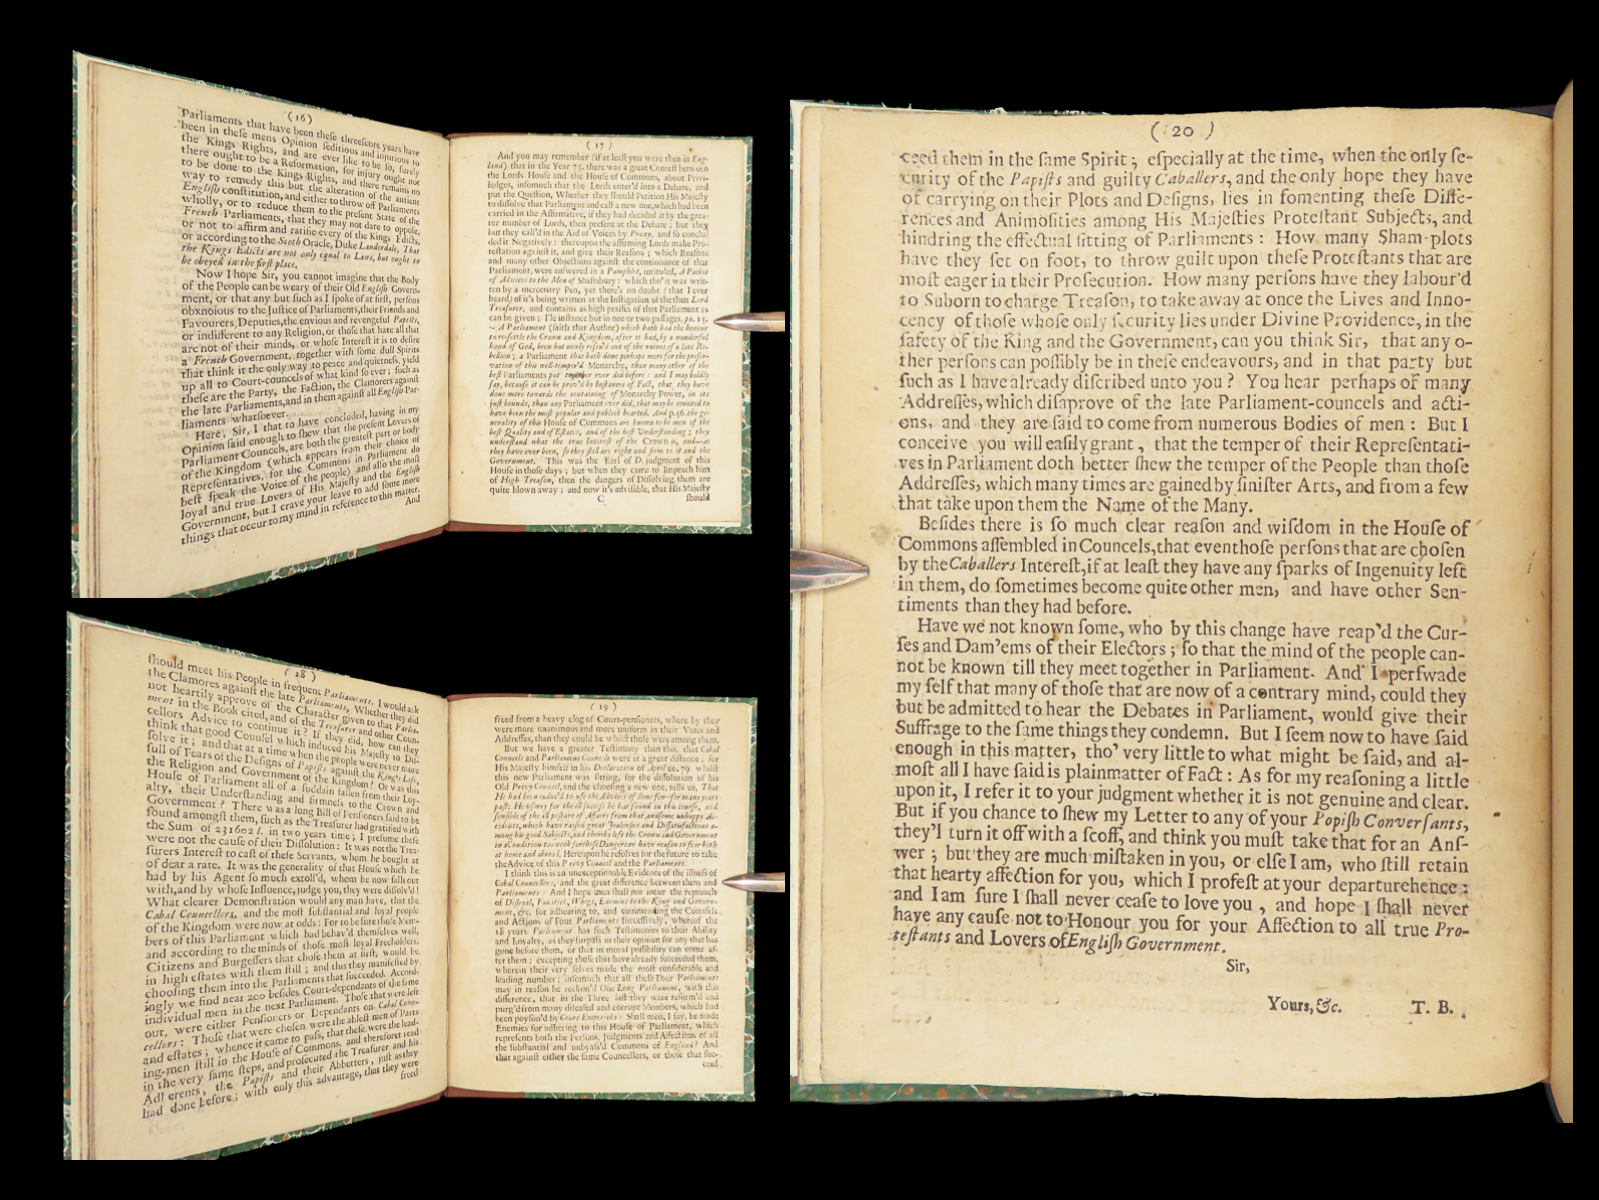 (16)
Parliaments that have been theſe threeſcore years have
been in theſe mens Opinion ſeditious and injurious to
the Kings Rights, and are ever like to be ſo, ſurely
there ought to be a Reformation, for injury ought not
to be done to the Kings Rights, and there remains no
way to remedy this but the alteration of the antient
Engliſh conſtitution, and either to throw off Parliaments
wholly, or to reduce them to the preſent State of the
French Parliaments, that they may not dare to oppoſe,
or not to affirm and ratifie every of the Kings Edicts,
or according to the Scotch Oracle, Duke Lauderdale, That
the Kings Edicts are not only equal to Laws, but ought to
be obeyed in the firſt place.
Now I hope Sir, you cannot imagine that the Body
of the People can be weary of their Old Engliſh Govern-
ment, or that any but ſuch as I ſpoke of at firſt, perſons
obnoxious to the Juſtice of Parliaments, their Friends and
Favourers, Deputies, the envious and revengeful Papiſts,
or indifferent to any Religion, or thoſe that hate all that
are not of their minds, or whoſe Intereſt it is to deſire
a French Government, together with ſome dull Spirits
that think it the only way to peace and quietneſs, yield
up all to Court-councels of what kind ſo ever; ſuch as
theſe are the Party, the Faction, the Clamorers againſt
the late Parliaments, and in them againſt all Engliſh Par-
liaments whatſoever.
Here, Sir, I that to have concluded, having in my
Opinion ſaid enough to ſhew that the preſent Lovers of
Parliament Councels, are both the greateſt part or body
of the Kingdom (which appears from their choice of
Repreſentatives, for the Commons in Parliament do
beſt ſpeak the Voice of the people) and alſo the moſt
loyal and true Lovers of His Majeſty and the Engliſh
Government, but I crave your leave to add ſome more
things that occur to my mind in reference to this matter.
And
(17)
And you may remember (if at leaſt you were then in Eng-
land) that in the Year 75. there was a great Conteſt between
the Lords Houſe and the Houſe of Commons, about Privi-
ledges, inſomuch that the Lords enter'd into a Debate, and
put the Queſtion, Whether they ſhould Petition His Majeſty
to diſſolve that Parliament and call a new one, which had been
carried in the Affirmative, if they had decided it by the grea-
ter number of Lords, then preſent at the Debate; but they
but they call'd in the Aid of Voices by Proxy, and ſo conclu-
ded it Negatively: thereupon the affirming Lords make Pro-
teſtation againſt it, and give their Reaſons; which Reaſons
and many other Objections againſt the continuance of that
Parliament, were anſwered in a Pamphlet, intituled, A Packet
of Advices to the Men of Shaftsbury: which tho' it was writ-
ten by a mercenary Pen, yet there's no doubt (that I ever
heard) of it's being written at the Inſtigation of the then Lord
Treaſurer, and contains as high praiſes of that Parliament as
can be given; I'le inſtance but in one or two paſſages, pa. 15.
A Parliament (ſaith that Author) which hath had the honour
to reſettle the Crown and Kingdom, after it had, by a wonderful
hand of God, been but newly reſcu'd out of the ruines of a late Re-
bellion; a Parliament that hath done perhaps more for the preſer-
vation of this well-temper'd Monarchy, than any other of the
beſt Parliaments put together ever did before: and I may boldly
ſay, becauſe it can be prov'd by Inſtances of Fact, that they have
done more towards the containing of Monarchy Power, in its
juſt bounds, than any Parliament ever did, that may be counted to
have been the moſt popular and publick hearted. And p.56. the ge-
nerality of this Houſe of Commons are known to be men of the
beſt Quality and of Eſtates, and of the beſt Underſtanding; they
underſtand what the true Intereſt of the Crown is, and as
they have ever been, ſo they ſtill are right and firm to it and the
Government. This was the Earl of D. judgment of this
Houſe in thoſe days; but when they came to Impeach him
of High Treaſon, then the dangers of Diſſolving them are
quite blown away; and now it's adviſable, that His Majeſty
C ſhould
(18)
ſhould meet his People in frequent Parliaments. I would ask
the Clamores againſt the late Parliaments, Whether they did
not heartily approve of the Character given to that Parlia-
ment in the Book cited, and of the Treaſurer and other Coun-
cellors Advice to continue it? If they did, how can they
think that good Counſel which induced his Majeſty to Diſ-
ſolve it; and that at a time when the people were never more
full of Fears of the Deſigns of Papiſts againſt the King's Life,
the Religion and Government of the Kingdom? Or was this
Houſe of Parliament all of a ſuddain fallen from their Loy-
alty, their Underſtanding and firmneſs to the Crown and
Government? There was a long Bill of Penſioners ſaid to be
found amongſt them, ſuch as the Treaſurer had gratified with
the Sum of 231602 l. in two years time; I preſume theſe
were not the cauſe of their Diſſolution: It was not the Trea-
ſurers Intereſt to caſt of theſe Servants, whom he bought at
ſo dear a rate. It was the generality of that Houſe which he
had by his Agent ſo much extoll'd, whom he now falls out
with, and by whoſe Influence, judge you, they were diſſolv'd!
What clearer Demonſtration would any man have, that the
Cabal Councellors, and the moſt ſubſtantial and loyal people
of the Kingdom were now at odds: For to be ſure thoſe Mem-
bers of this Parliament which had behav'd themſelves well,
and according to the minds of thoſe moſt loyal Freeholders,
Citizens and Burgeſſers that choſe them at firſt, would be
in high eſtates with them ſtill; and this they manifeſted by
chooſing them into the Parliaments that ſucceeded. Accord-
ingly we find near 200 beſides Court-dependants of the ſame
individual men in the next Parliament. Thoſe that were left
out, were either Penſioners or Dependants on Cabal Coun-
cellors: Thoſe that were choſen were the ableſt men of Parts
and eſtates; whence it came to paſs, that theſe were the lead-
ing-men ſtill in the Houſe of Commons, and therefore tread
in the very ſame ſteps, and proſecuted the Treaſurer and his
Adherents, the Papiſts and their Abbettors, juſt as they
had done before; with only this advantage, that they were
freed
(19)
freed from a heavy clog of Court-penſioners, where by they
were more unanimous and more uniform in their Votes and
Addreſſes, than they could be whilſt thoſe were among them.
But we have a greater Teſtimony than this, that Cabal
Councils and Parliament Councils were at a great diſtance; for
His Majeſty himſelf in his Declaration of April 20. 79. whilſt
this new Parliament was ſitting, for the diſſolution of his
Old Privy Council, and the chooſing a new one, tells us, That
He had been induc'd to uſe the Advices of ſome few for many years
paſt: He is ſorry for the ill ſucceſs he has found in this courſe, and
ſenſible of the ill poſture of Affairs from that, and ſome unhappy Ac-
cidents, which have raiſed great Jealouſies and Diſſatisfactions a-
mong his good Subjects, and thereby left the Crown and Government
in a Condition too weak for thoſe Dangers we have reaſon to fear both
at home and abroad. Hereupon he reſolves for the future to take
the Advice of this Privy Council and the Parliaments.
I think this is an unexceptionable Evidence of the illneſs of
Cabal Councellors, and the great difference between them and
Parliaments: And I hope men ſhall not incur the reproach
of Diſloyal, Fanatick, Whigs, Enemies to the King and Govern-
ment, &c. for adhearing to, and commending the Counſels,
and Actions of Four Parliaments ſucceſſively, whereof the
18 years Parliament has ſuch Teſtimonies to their Ability
and Loyalty, as they ſurpaſs in their opinion for any that has
gone before them, or that in moral poſſibility can come af-
ter them; excepting thoſe that have already ſucceeded them,
wherein their very ſelves made the moſt conſiderable and
leading number; inſomuch that all theſe Four Parliaments
may in reaſon be reckon'd One Long Parliament, with this
difference, that in the Three laſt they were reform'd and
purg'd from many diſeaſed and corrupt Members, which had
been poyſon'd by Court Emperick: Shall men, I ſay, be made
Enemies for adhering to this Houſe of Parliament, which
repreſents both the Perſons, Judgments and Affections of all
the ſubſtantial and unbyaſs'd Commons of England? And
that againſt either the ſame Councellors, or thoſe that ſuc-
ceed
(20)
ceed them in the ſame Spirit; eſpecially at the time, when the only ſe-
curity of the Papiſts and guilty Caballers, and the only hope they have
of carrying on their Plots and Deſigns, lies in fomenting theſe Diffe-
rences and Animoſities among His Majeſties Proteſtant Subjects, and
hindring the effectual ſitting of Parliaments: How many Sham-plots
have they ſet on foot, to throw guilt upon theſe Proteſtants that are
moſt eager in their Proſecution. How many perſons have they labour'd
to Suborn to charge Treaſon, to take away at once the Lives and Inno-
cency of thoſe whoſe only ſecurity lies under Divine Providence, in the
ſafety of the King and the Government, can you think Sir, that any o-
ther perſons can poſſibly be in theſe endeavours, and in that party but
ſuch as I have already diſcribed unto you? You hear perhaps of many
Addreſſes, which diſaprove of the late Parliament-councels and acti-
ons, and they are ſaid to come from numerous Bodies of men: But I
conceive you will eaſily grant, that the temper of their Repreſentati-
ves in Parliament doth better ſhew the temper of the People than thoſe
Addreſſes, which many times are gained by ſiniſter Arts, and from a few
that take upon them the Name of the Many.
Beſides there is ſo much clear reaſon and wiſdom in the Houſe of
Commons aſſembled in Councels, that even thoſe perſons that are choſen
by the Caballers Intereſt, if at leaſt they have any ſparks of Ingenuity left
in them, do ſometimes become quite other men, and have other Sen-
timents than they had before.
Have we not known ſome, who by this change have reap'd the Cur-
ſes and Dam'ems of their Electors; ſo that the mind of the people can-
not be known till they meet together in Parliament. And I perſwade
my ſelf that many of thoſe that are now of a contrary mind, could they
but be admitted to hear the Debates in Parliament, would give their
Suffrage to the ſame things they condemn. But I ſeem now to have ſaid
enough in this matter, tho' very little to what might be ſaid, and al-
moſt all I have ſaid is plain matter of Fact: As for my reaſoning a little
upon it, I refer it to your judgment whether it is not genuine and clear.
But if you chance to ſhew my Letter to any of your Popiſh Converſants,
they'l turn it off with a ſcoff, and think you muſt take that for an Anſ-
wer; but they are much miſtaken in you, or elſe I am, who ſtill retain
that hearty affection for you, which I profeſt at your departure hence:
and I am ſure I ſhall never ceaſe to love you, and hope I ſhall never
have any cauſe not to Honour you for your Affection to all true Pro-
teſtants and Lovers of Engliſh Government.
Sir,
Yours, &c. T. B.